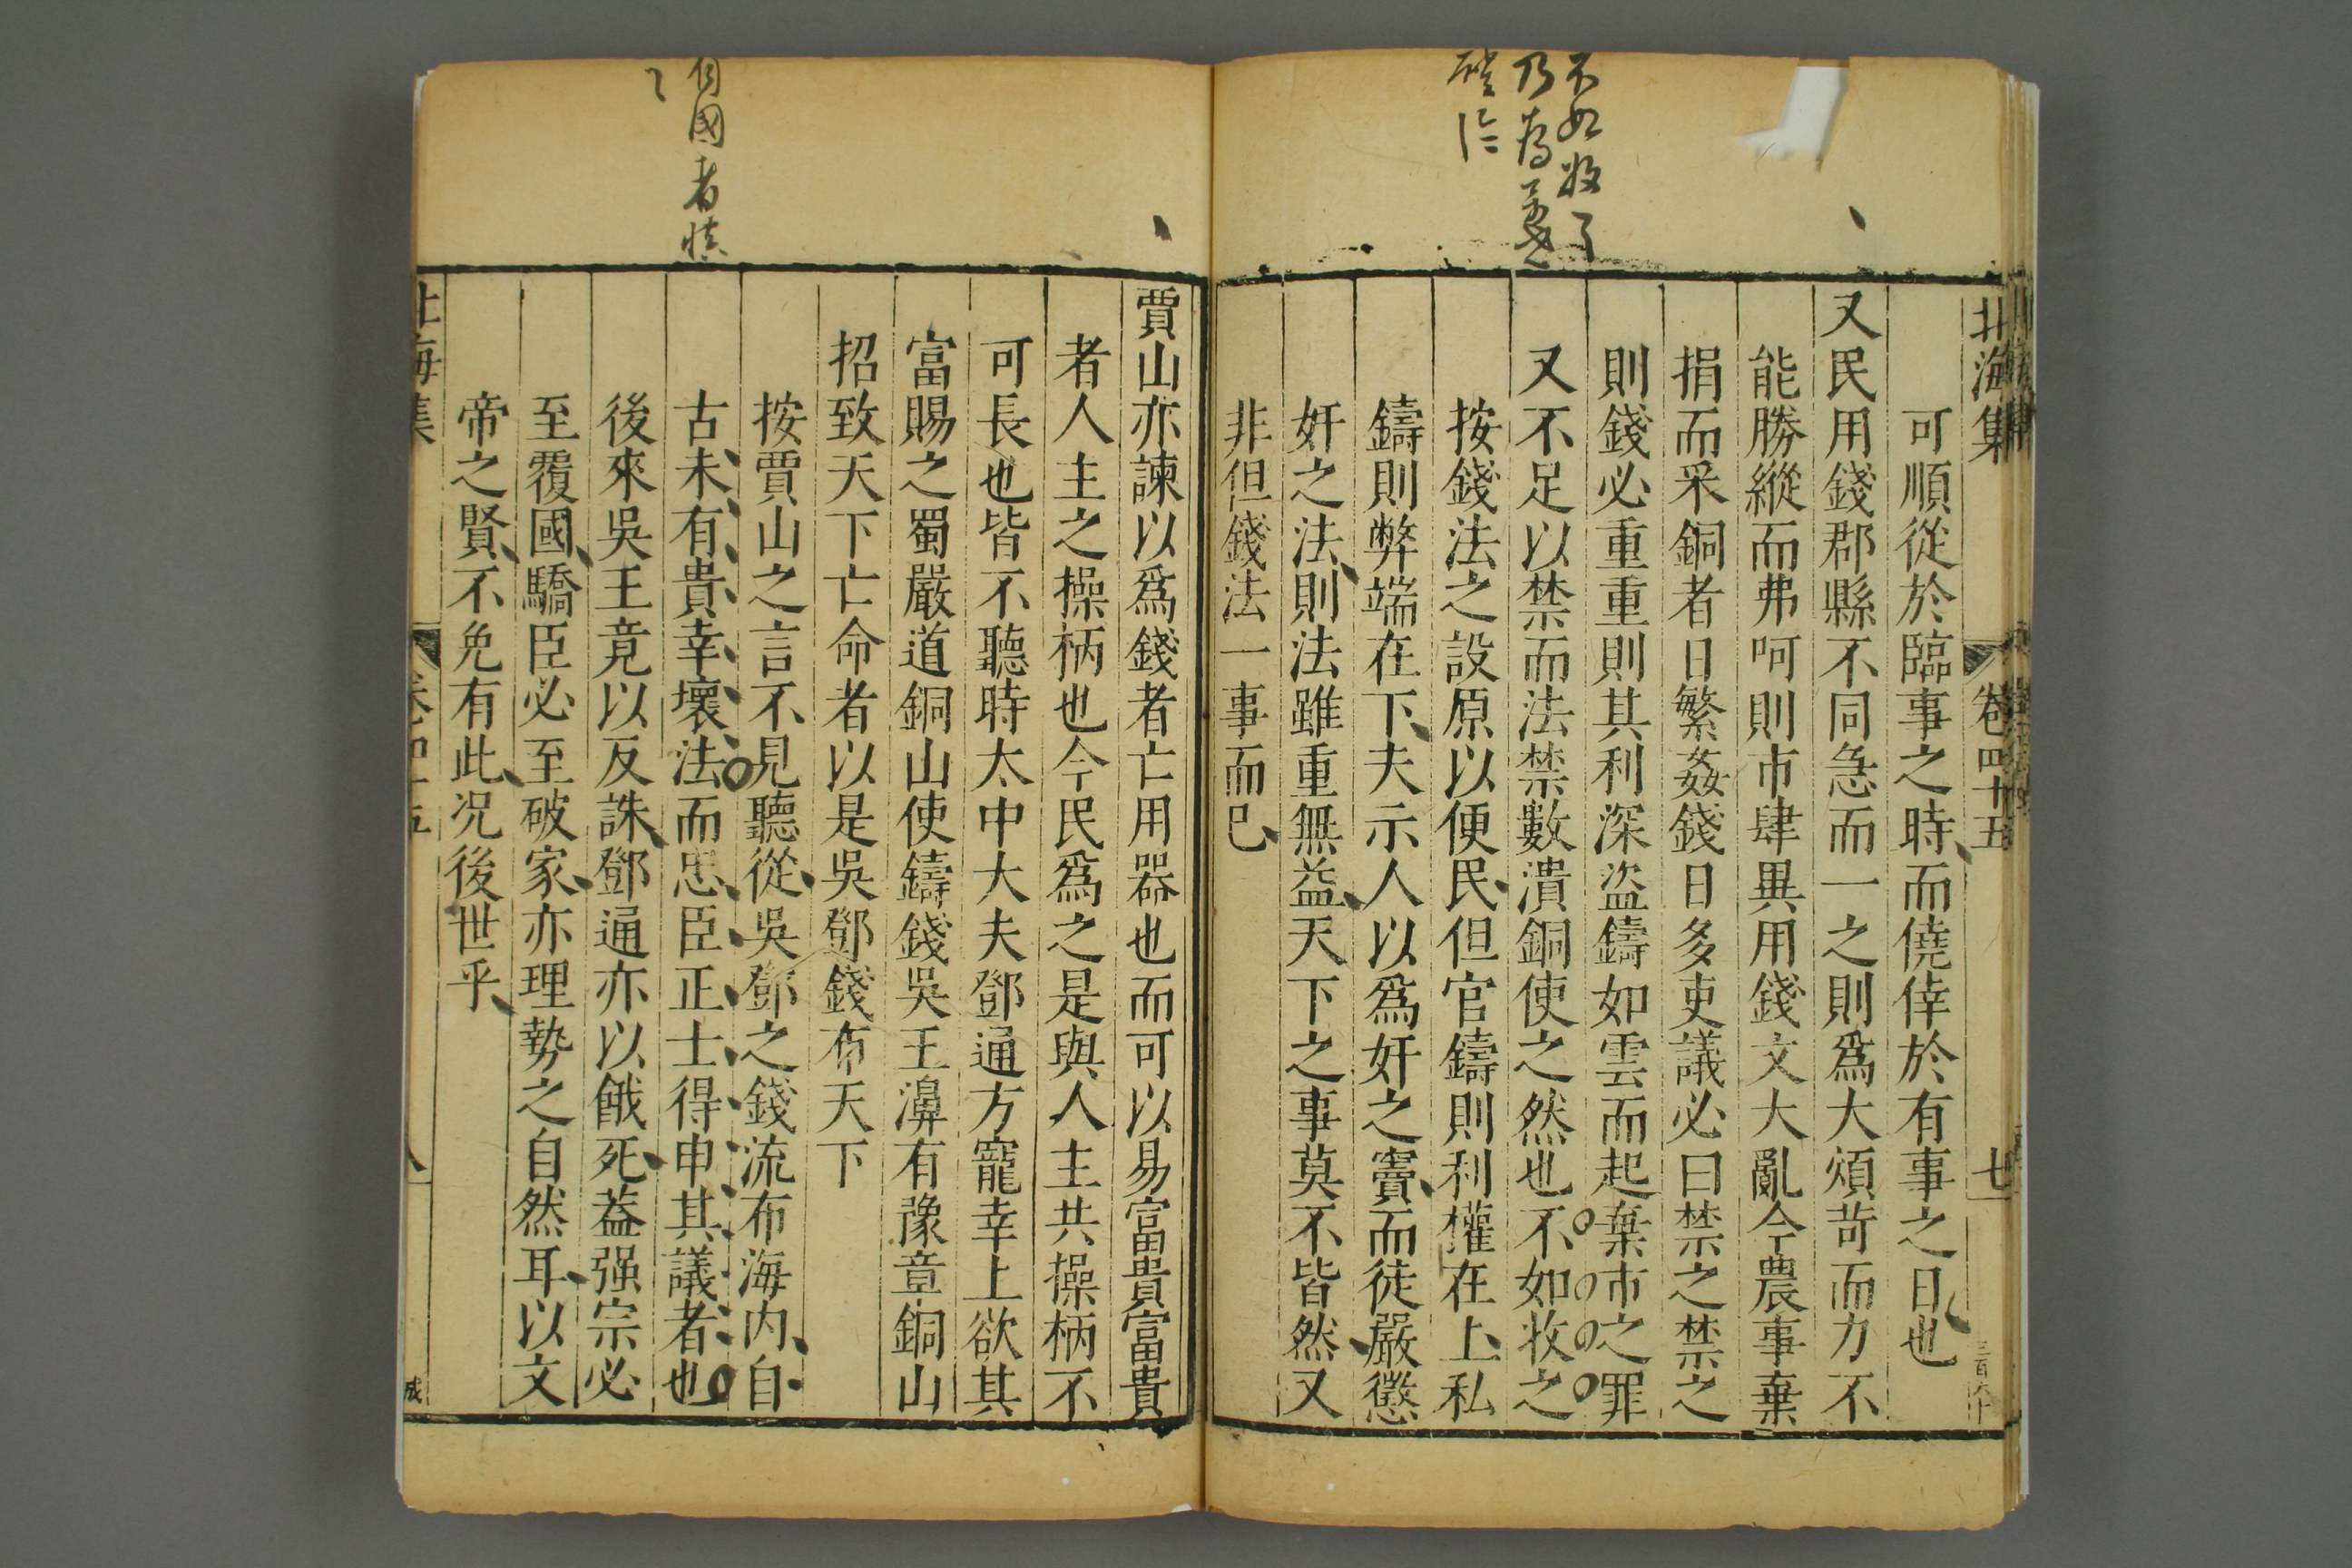 不如收了
乃為善
北海集 卷四十五 七 三百六十
可順從於臨事之時而僥倖於有事之日也
又民用錢郡縣不同急而一之則爲大煩苛而力不
能勝縱而弗呵則市肆異用錢文大亂今農事棄
捐而采銅者日繁姦錢日多吏議必曰禁之禁之
則錢必重重則其利深盜鑄如雲而起棄市之罪
又不足以禁而法禁數潰銅使之然也不如收之
按錢法之設原以便民但官鑄則利權在上私
鑄則弊端在下夫示人以爲奸之竇而徒嚴懲
奸之法則法雖重無益天下之事莫不皆然又
非但錢法一事而已
有國者慎
賈山亦諫以爲錢者亡用器也而可以易富貴富貴
者人主之操柄也今民爲之是與人主共操柄不
可長也皆不聽時太中大夫鄧通方寵幸上欲其
富賜之蜀嚴道銅山使鑄錢吳王濞有豫章銅山
招致天下亡命者以是吳鄧錢布天下
按賈山之言不見聽從吳鄧之錢流布海內自
古未有貴幸壞法而忠臣正士得申其議者也
後來吳王竟以反誅鄧通亦以餓死蓋强宗必
至覆國驕臣必至破家亦理勢之自然耳以文
帝之賢不免有此况後世乎
北海集 卷四十五 八 成